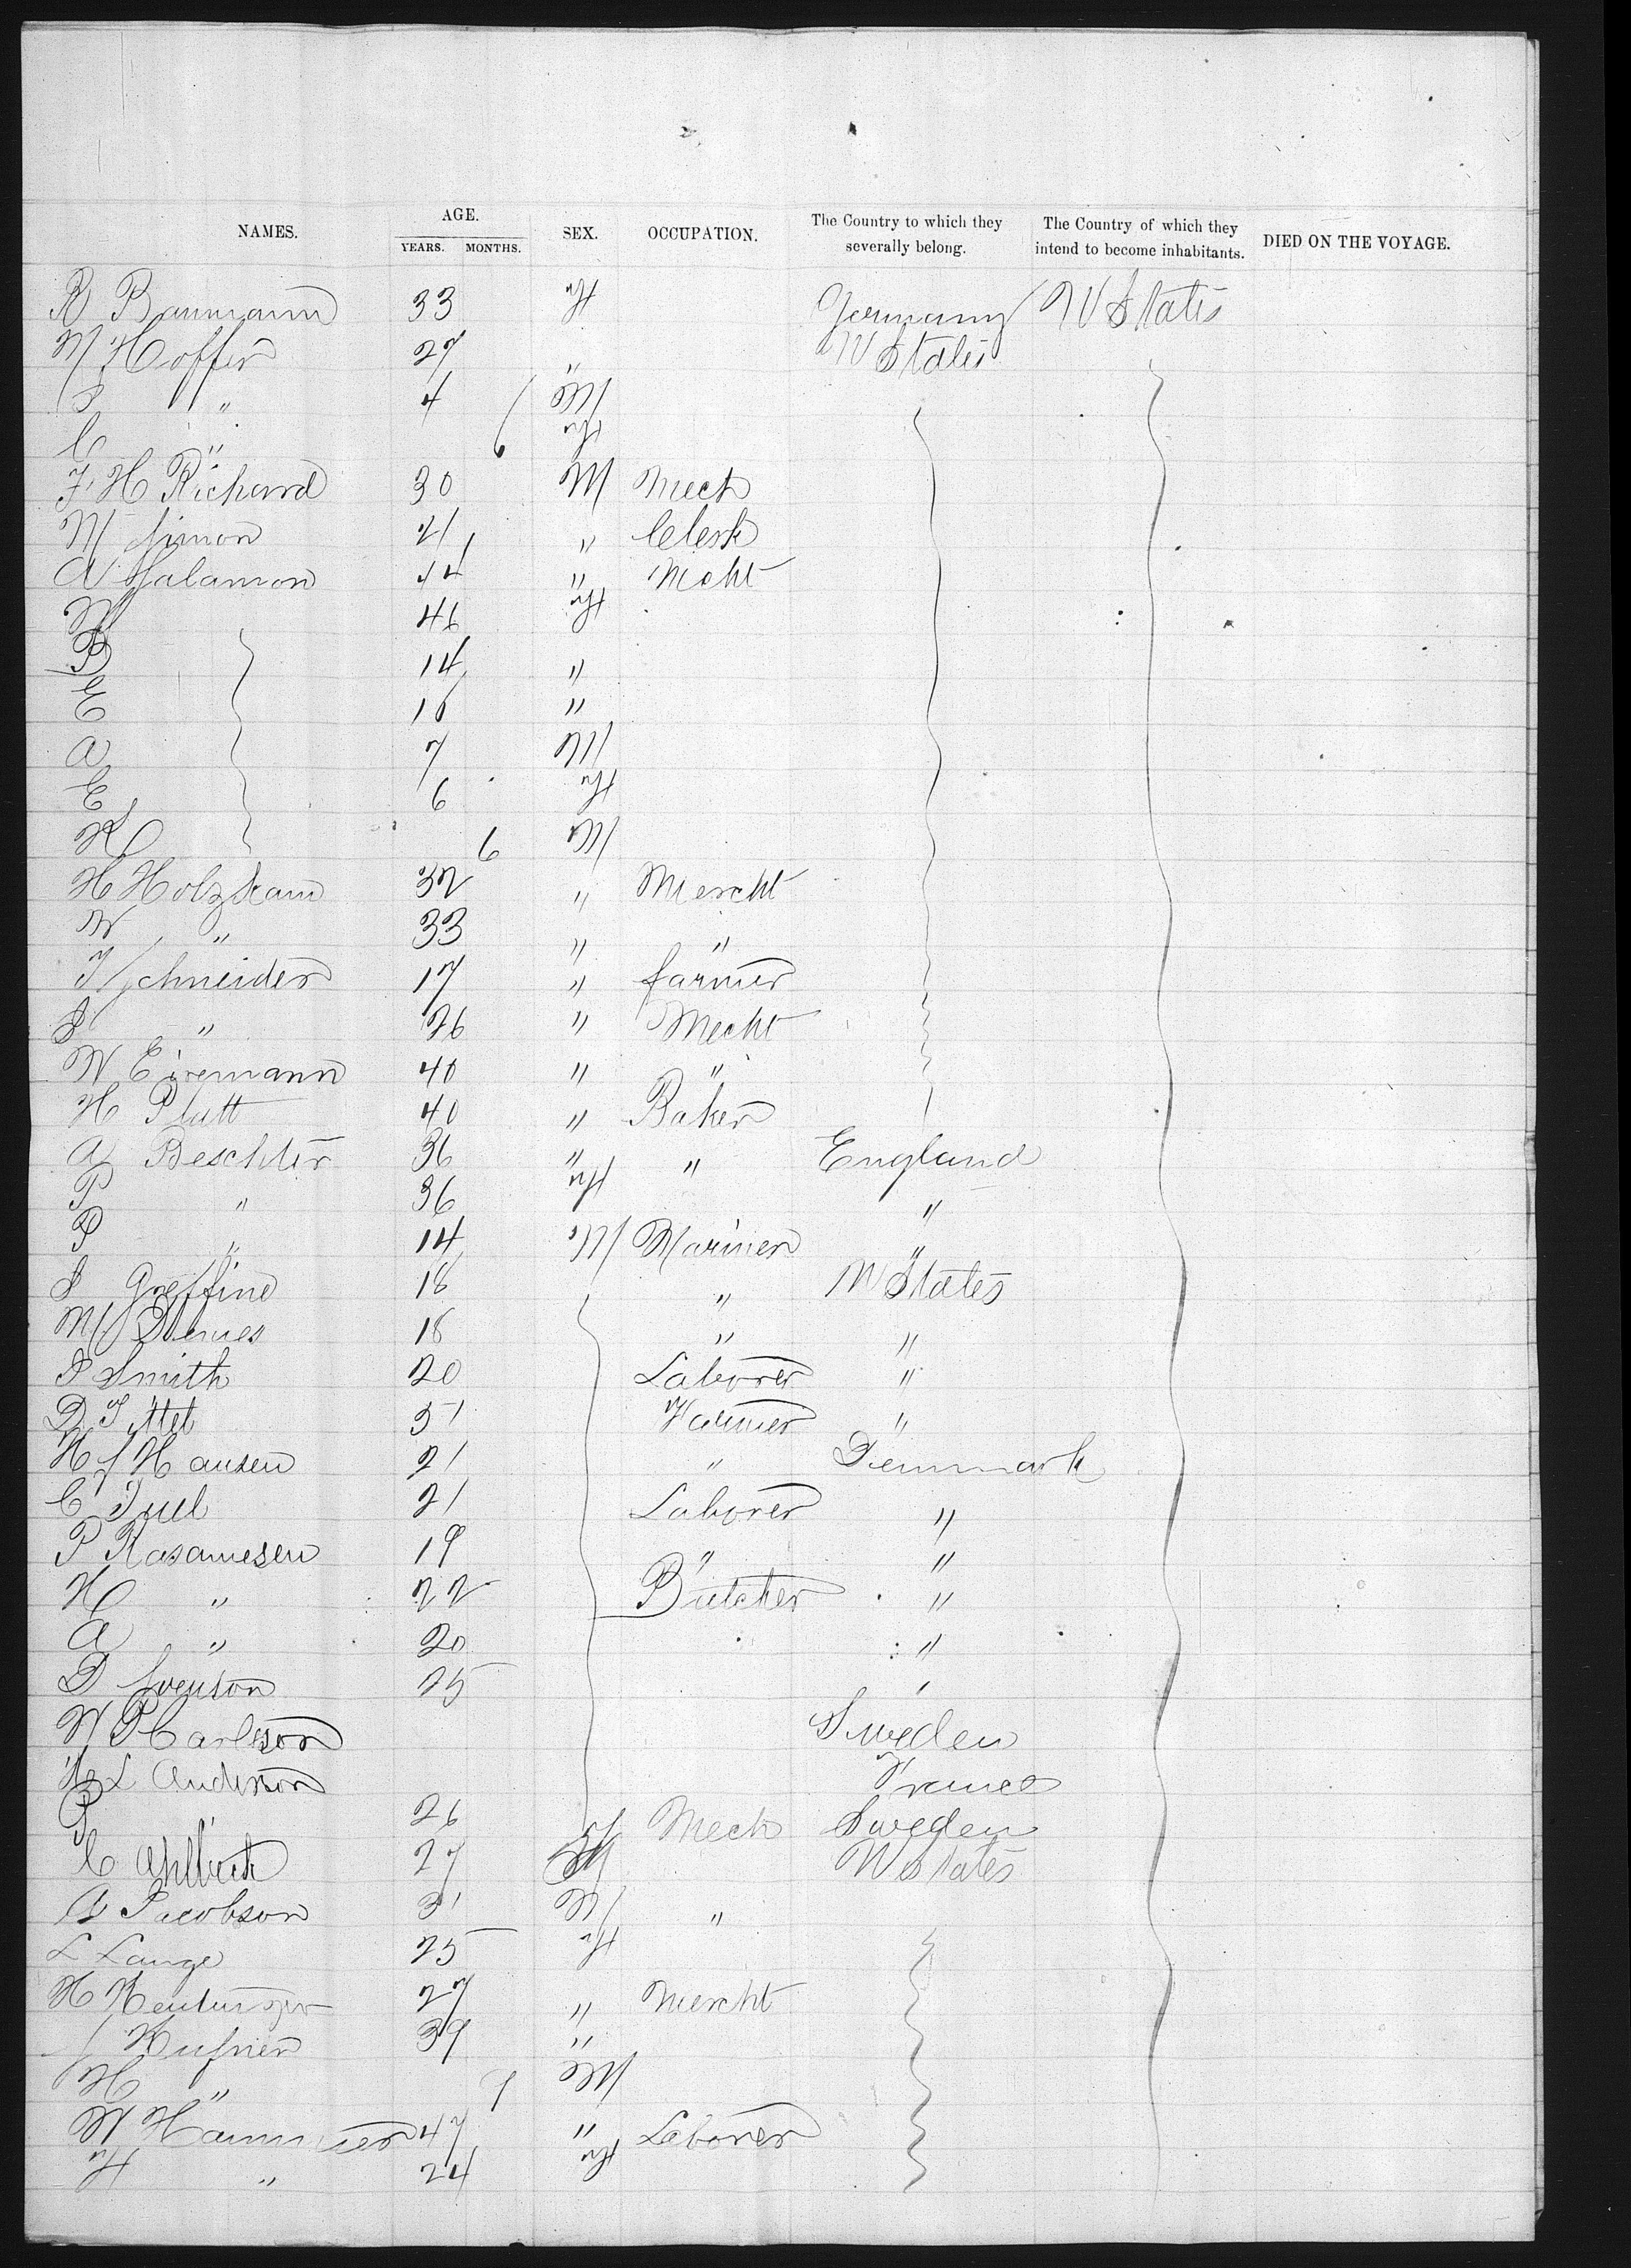 NAMES. AGE. YEARS. MONTHS. SEX. OCCUPATION. The Country to which they severally belong. The Country of which they intend to become inhabitants. DIED ON THE VOYAGE.
R Baumann 33 F Germany U States
M Hoffer 27 " U States
S " 4 M
C " 6 F
F. H Richard 30 M Mech
M Simon 21 " Clerk
A Salamon 44 " Mcht
M 46 F
B 14 "
E 16 "
A 7 M
E 6 F
K 6 M
H Holzkam 32 " Mercht
W " 33 " "
J Schneider 17 " farmer
S " 26 " Mecht
W Eivemann 40 " "
H Platt 40 " Baker
A Beschter 36 " " England
P " 36 F "
P " 14 M Mariner "
S Greffine 18 " U States
M 18 " "
S Smith 20 Laborer "
D Tittet 51 Farmer "
H J Hansen 21 " Denmark
C Juel 21 Laborer "
P Rasamesen 19 " "
H " 22 Butcher "
A " 20 "
D Svenson 25 "
W P Carlson Sweden
L Anderson France
P 26 F Mech Sweden
C Ahlbeck 27 M U States
A Jacobson 31 M "
L Lange 25 F
H 27 " Mercht
J Kufner 39 "
H " 9 M
W Hammer 47 " Leborer
F " 24 F